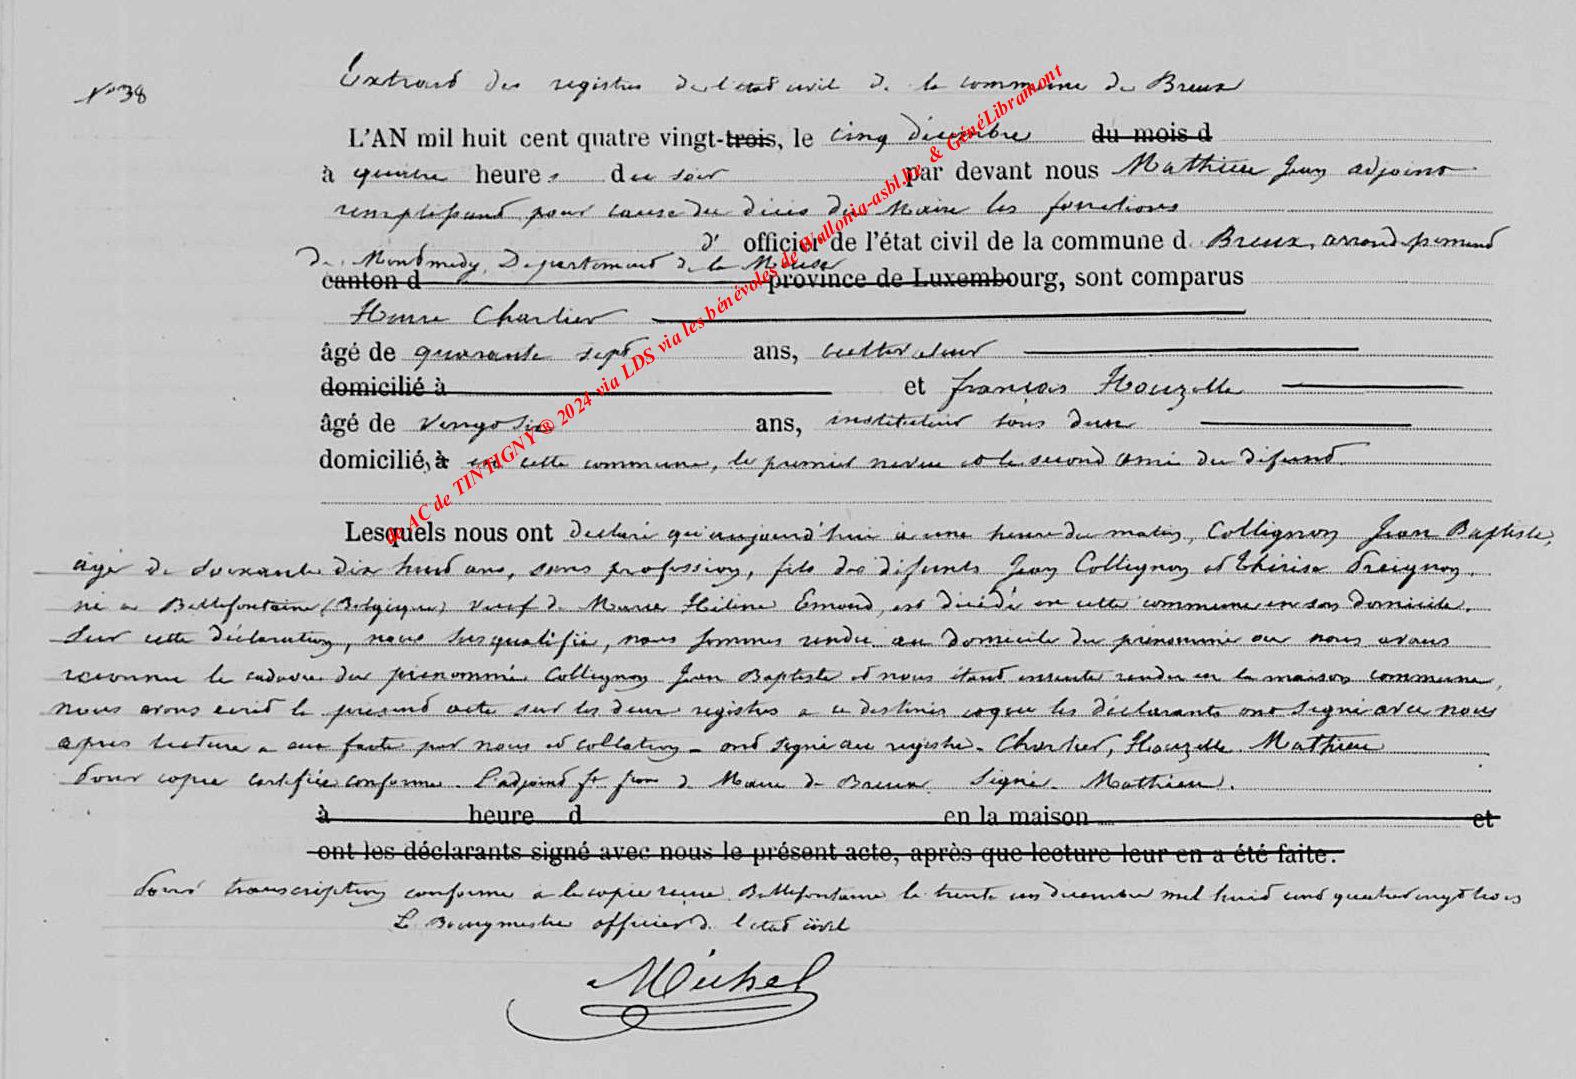 N° 38
Extrait des registres de l'état civil de la commune de Breux
L'AN mil huit cent quatre vingt-trois, le cinq décembre du mois d
à quatre heures du soir par devant nous Mathieu Jean adjoint
remplissant pour cause du décès du Maire les fonctions
d' officier de l'état civil de la commune d Breux, arrondissement
de Montmedy, Departement de la Meuse
canton d province de Luxembourg, sont comparus
Charlier
âgé de quarante sept ans, cultivateur
domicilié à et françois Houzelle
âgé de vingt six ans, instituteur tous deux
domiciliés à en cette commune, le premier neveu et le second ami du défunt.
Lesquels nous ont déclaré qu'aujourd'hui à une heure du matin, Collignon Jean Baptiste,
âgé de soixante dix huit ans, sans profession, fils des défunts Jean Collignon et Thérèse
né à Bellefontaine (Belgique) veuf de Marie Hélène Emond, est décédé en cette commune en son domicile.
Sur cette déclaration, nous susqualifié, nous sommes rendu au domicile du prénommé où nous avons
reconnu le cadavre du prénommé Collignon Jean Baptiste et nous étant ensuite rendu en la maison commune,
nous avons écrit le présent acte sur les deux registres à ce destinés et que les déclarants ont signé avec nous
après lecture à eux faite par nous et collation - ont signé au registre. Charlier, Houzelle. Mathieu
Pour copie certifiée conforme. L'adjoint ft fon de Maire de Breux. Signé. Mathieu.
à heure d en la maison et
ont les déclarants signé avec nous le présent acte, après que lecture leur en a été faite.
Pour transcription conforme à la copie reçue Bellefontaine le trente un décembre mil huit cent quatre vingt trois
L Bourgmestre officier d. l'état civil
Michel
de AC de TINTIGNY® 2024 via LDS via les bénévoles de Wallonia-asbl.be & GénéLibramont